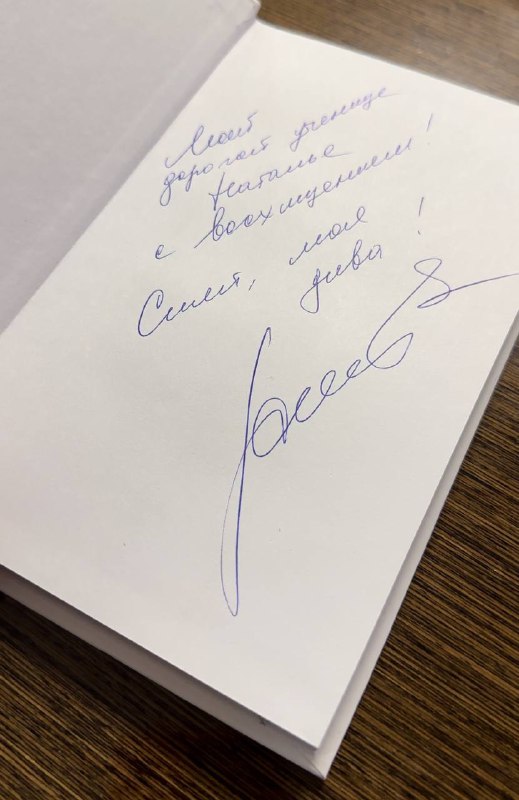 Моей
дорогой ученице
Наталье
с восхищением!
Сияй, моя
дива!